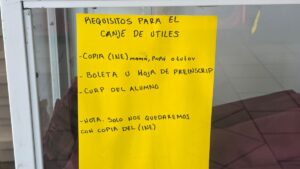 REQUISITOS PARA EL
CANJE DE UTILES
- COPIA (INE) mamá, Papá o tutor
- BOLETA U HOJA DE PREINSCRIP
- CURP DEL ALUMNO
- NOTA. SOLO NOS QUEDAREMOS
CON COPIA DEL (INE)